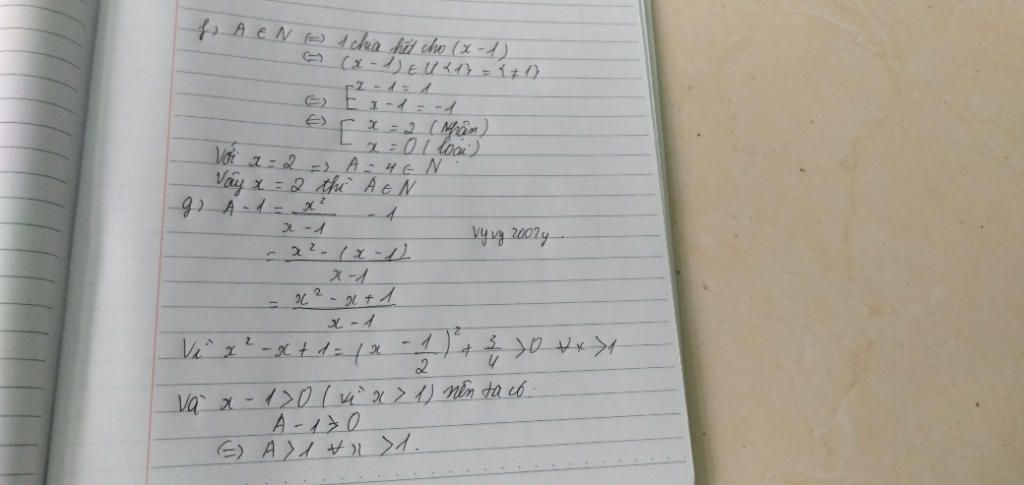 f) A ∈ N ⇔ 1 chia hết cho (x - 1)
⇔ (x - 1) ∈ Ư{1} = {±1}
⇔ [ x - 1 = 1
x - 1 = -1
⇔ [ x = 2 (Nhận)
x = 0 (loại)
Với x = 2 ⇒ A = 4 ∈ N
Vậy x = 2 thì A ∈ N
g) A - 1 = x²/(x - 1) - 1
vyvy2007y
= (x² - (x - 1))/(x - 1)
= (x² - x + 1)/(x - 1)
Vì x² - x + 1 = (x - 1/2)² + 3/4 > 0 ∀x > 1
Và x - 1 > 0 (vì x > 1) nên ta có:
A - 1 > 0
⇔ A > 1 ∀x > 1.